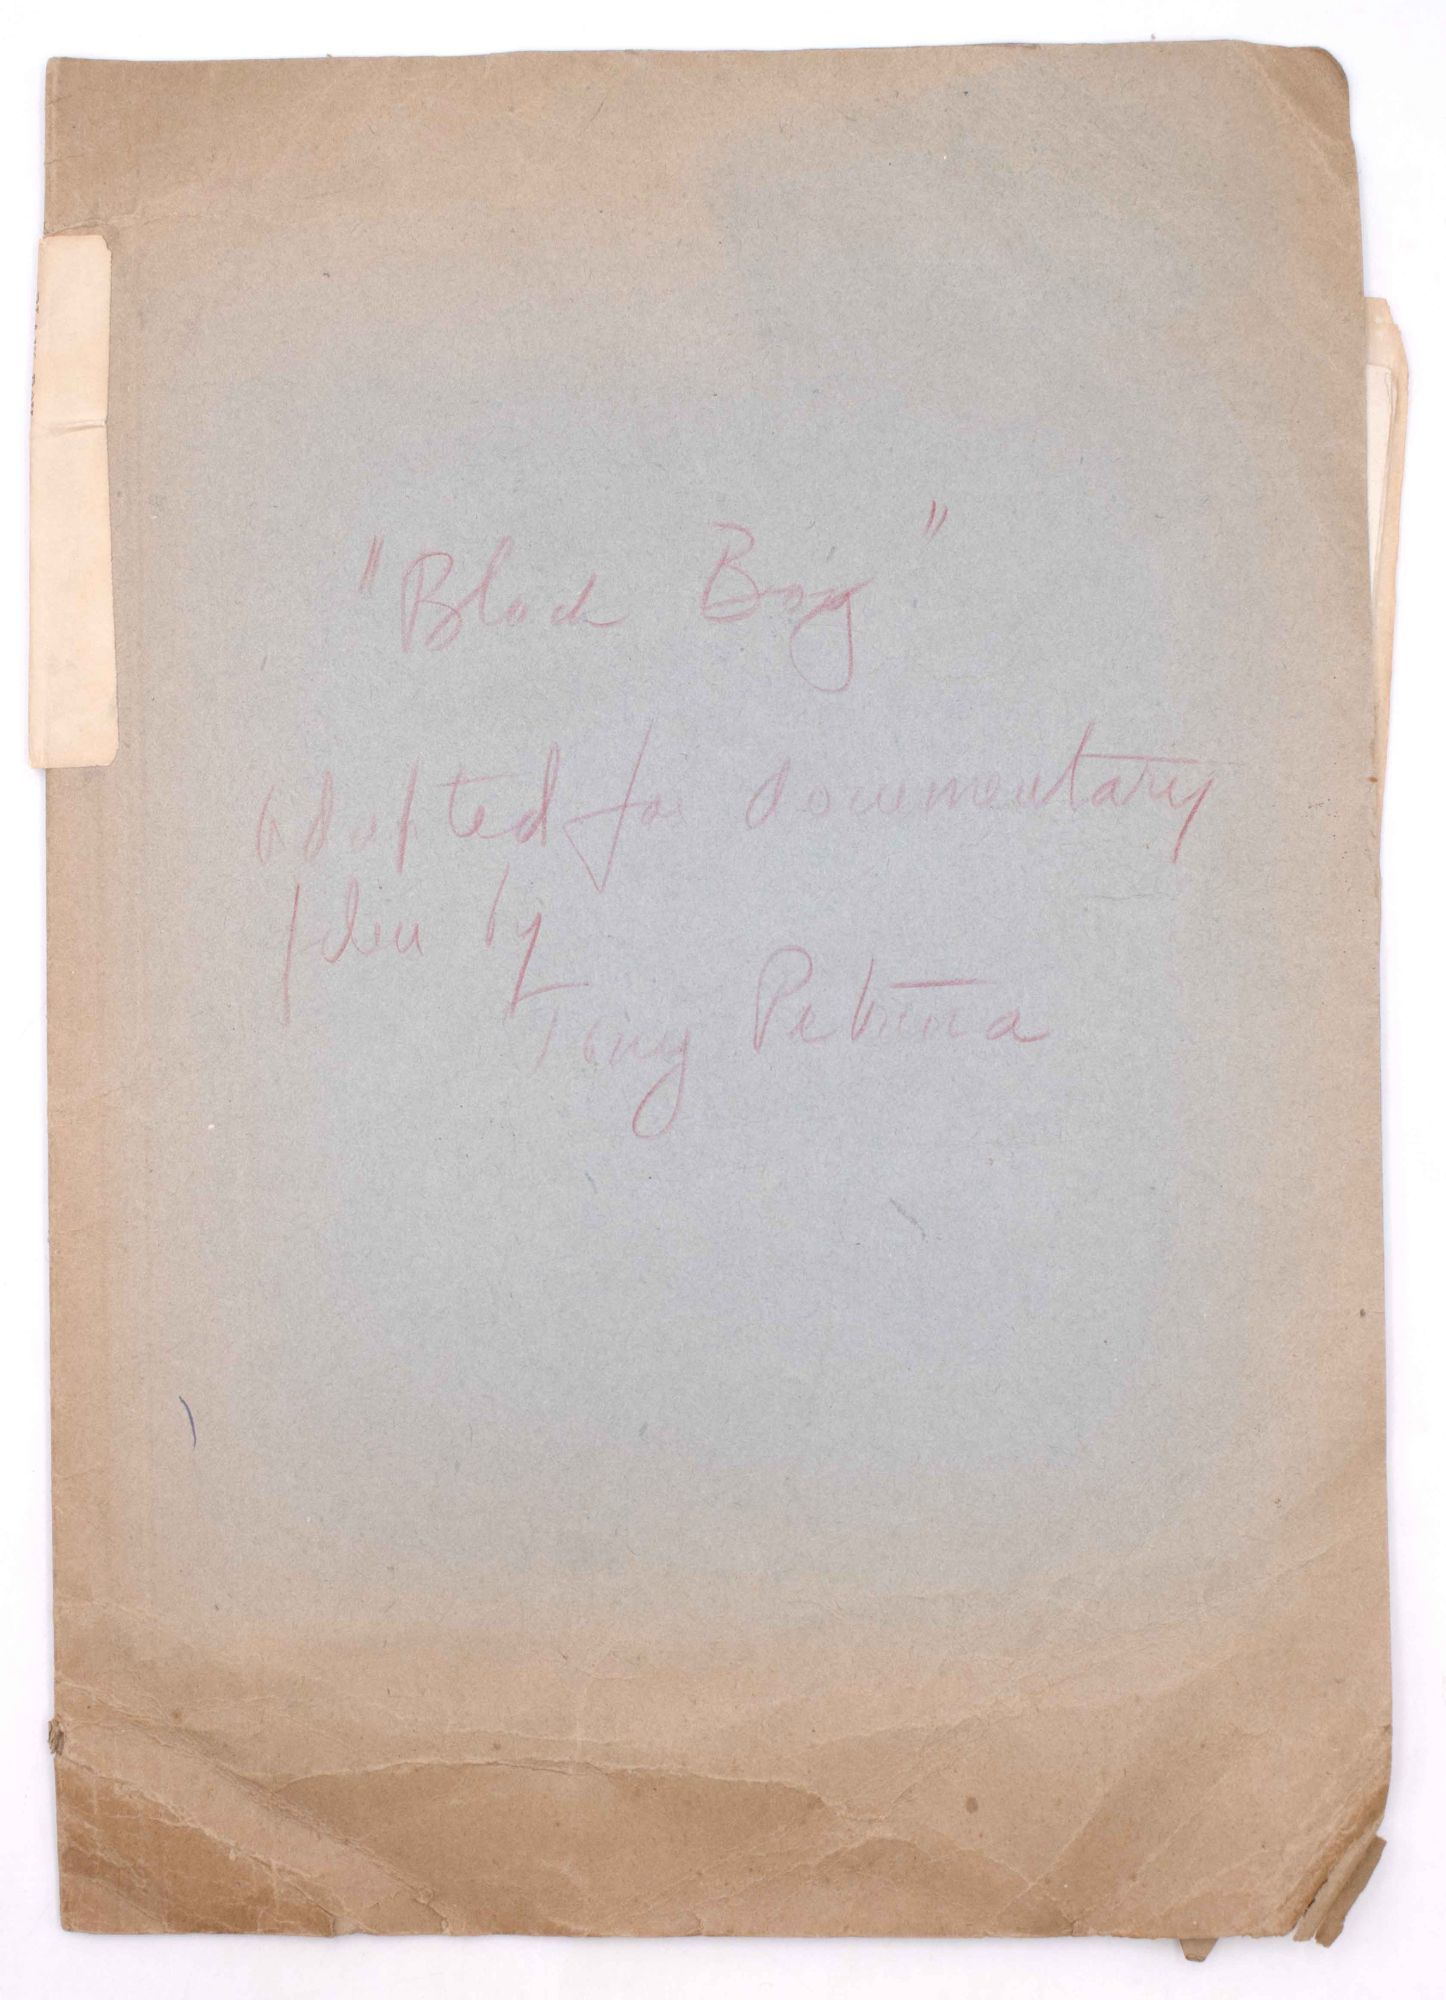 "Black Boy"
adapted for documentary
film by
Tony Petrina